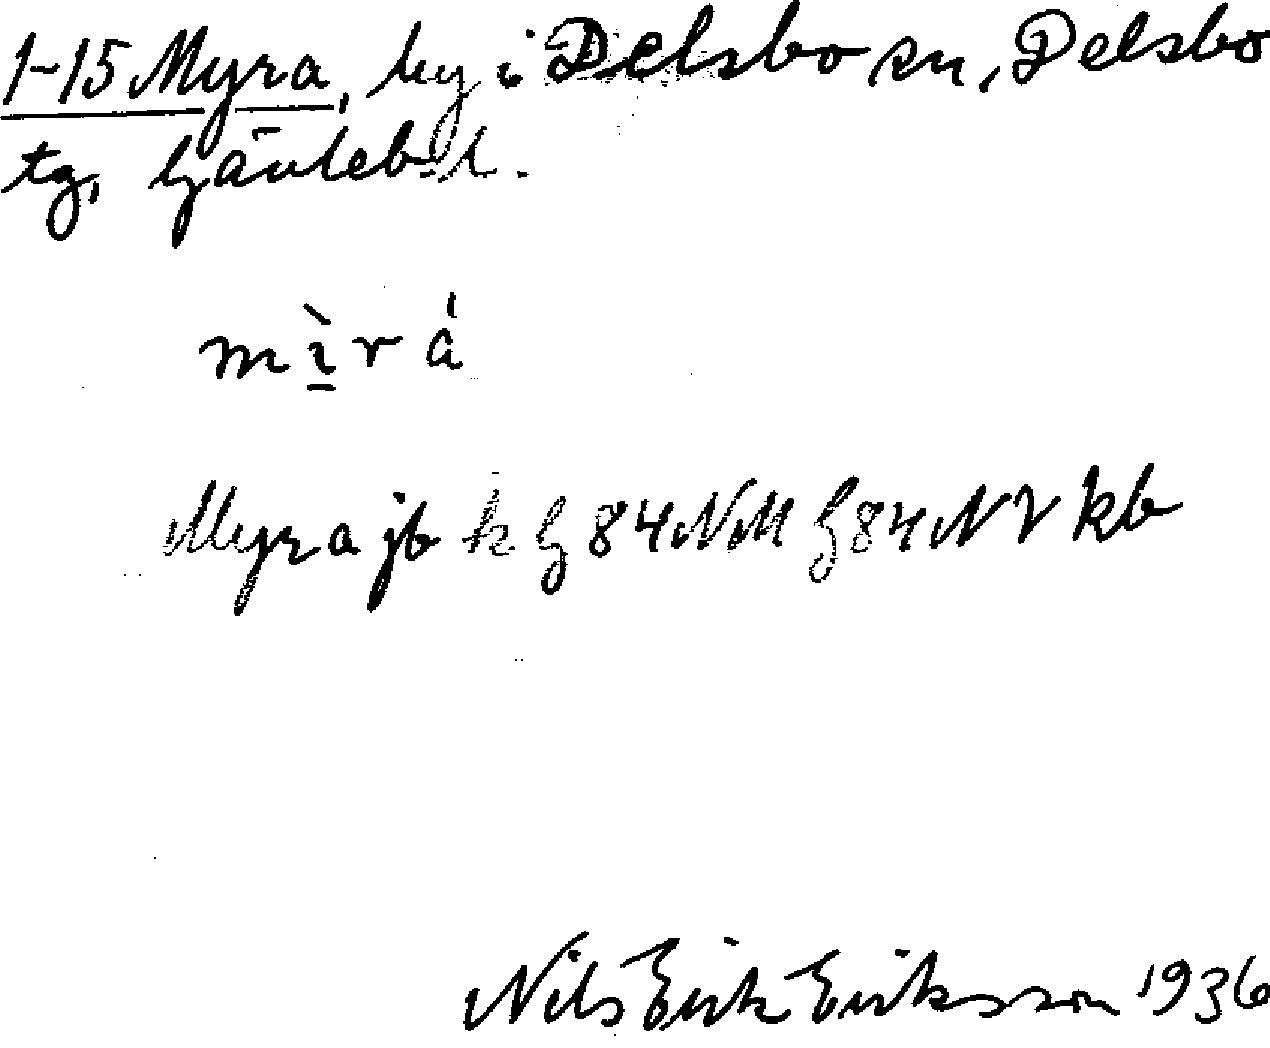 1-15 Myra, by i Delsbo sn, Delsbo
tg, Gävleb. l.
mì̱rá
Myra jb k G 84 NM G 84 NV kb
Nils Erik Eriksson 1936